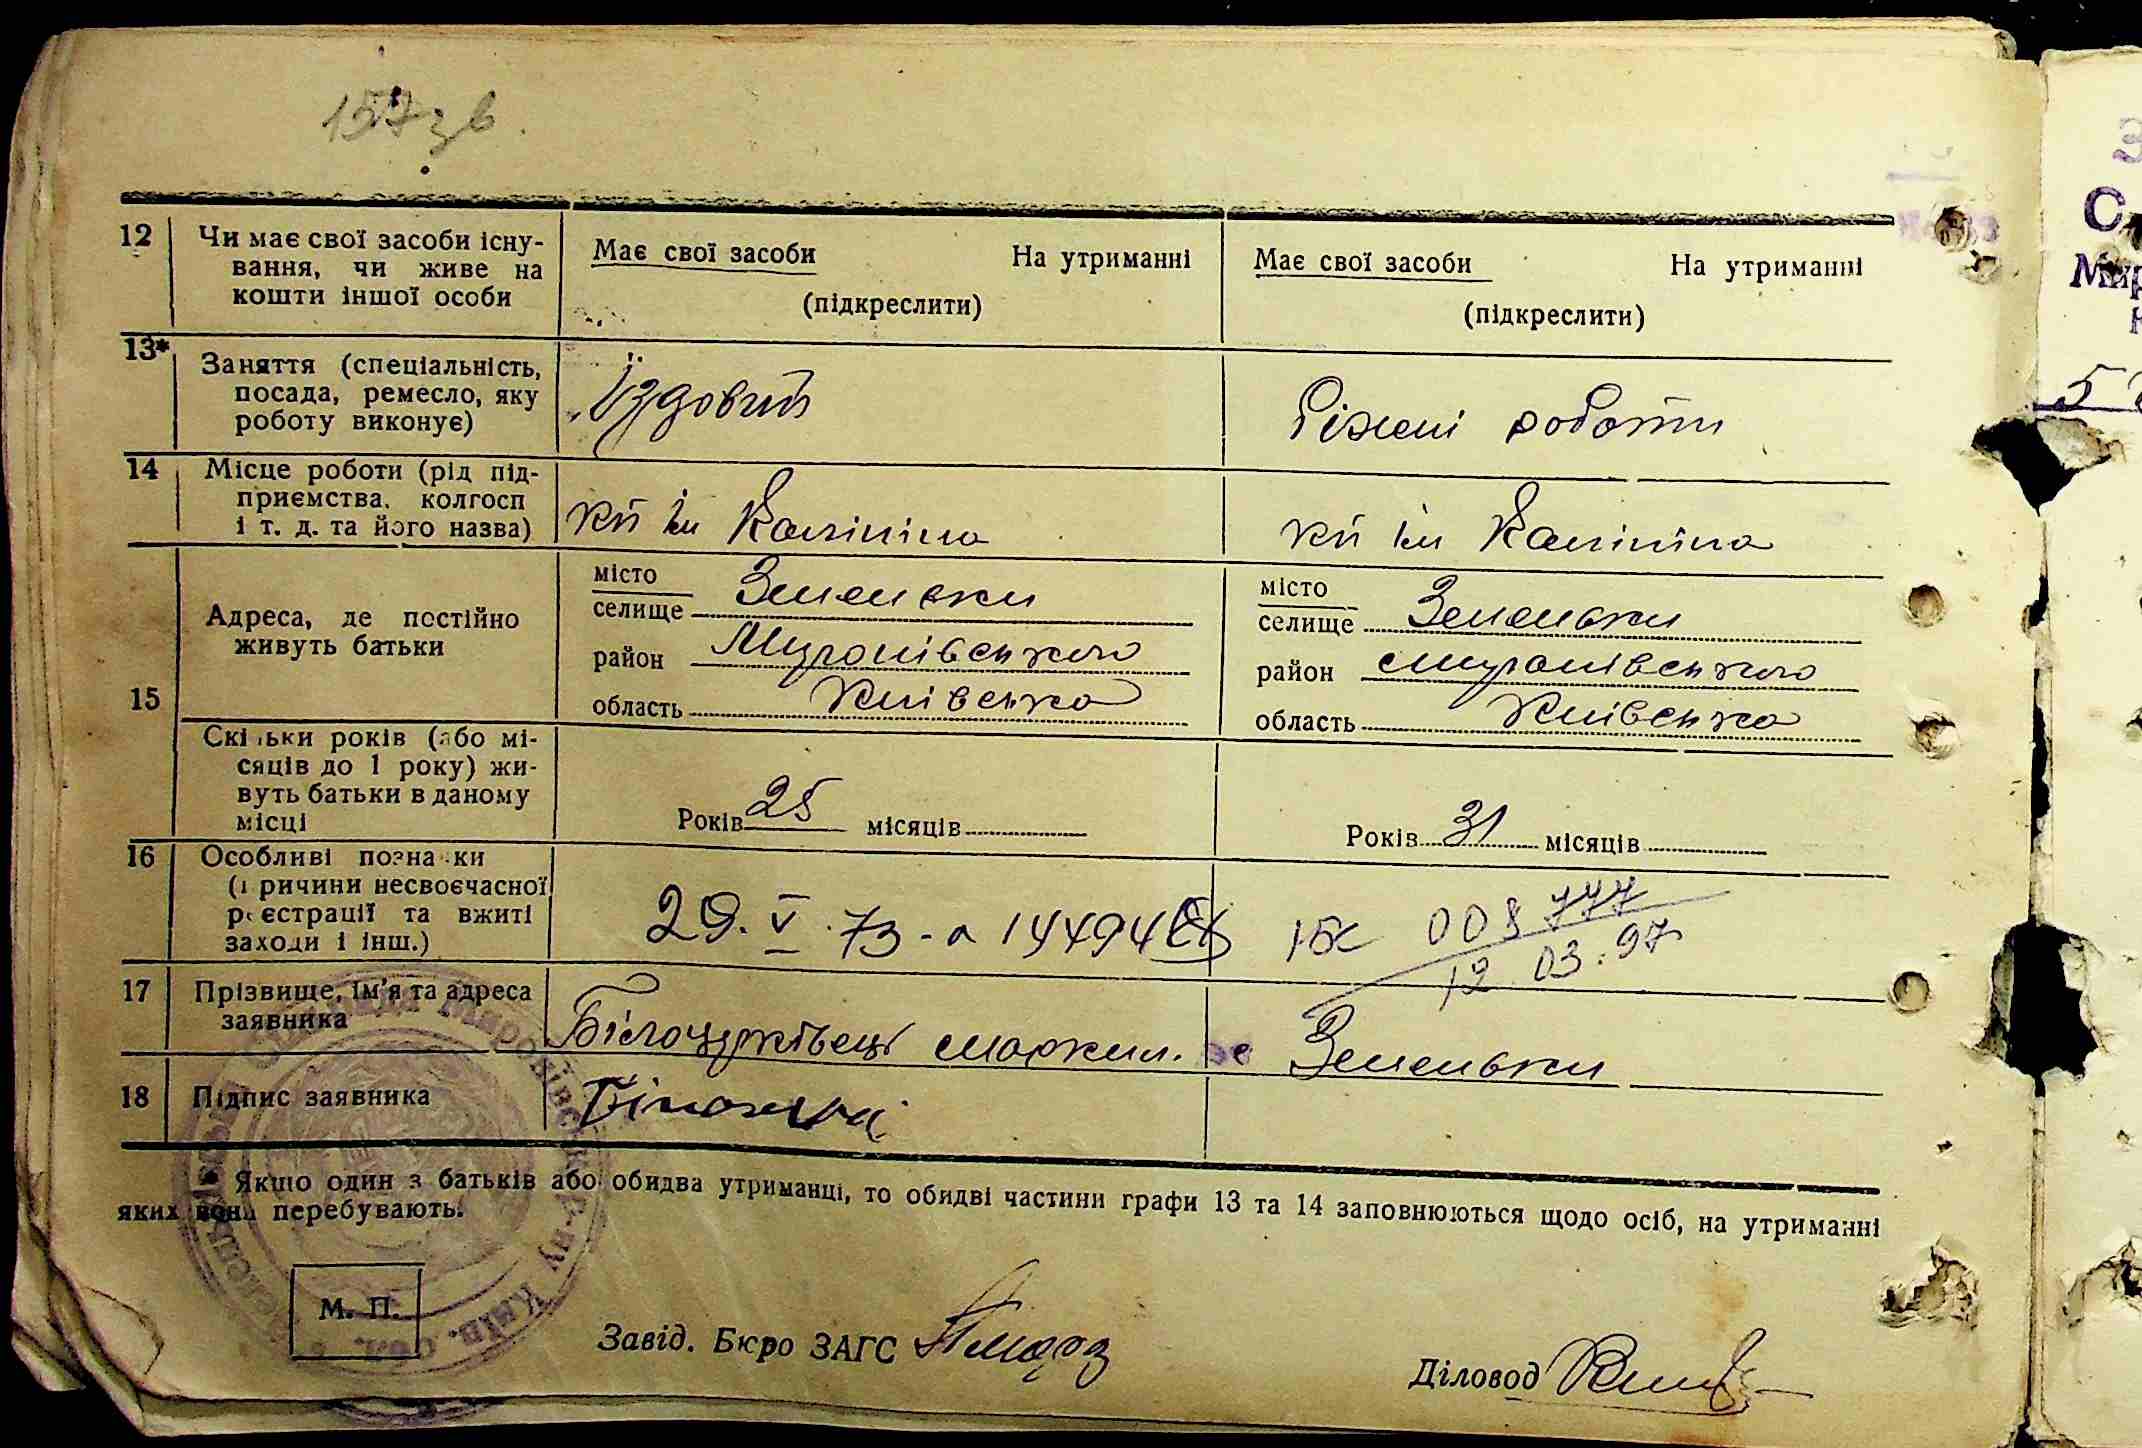 157 зв.
12 Чи має свої засоби існування, чи живе на кошти іншої особи
Має свої засоби На утриманні
(підкреслити)
Має свої засоби На утриманні
(підкреслити)
13* Заняття (спеціальність,
посада, ремесло, яку
роботу виконує)
Їздовий
Ріжні роботи
14 Місце роботи (рід під-
приємства, колгосп
і т. д. та його назва)
кп ім Калініна
кп ім Калініна
15
Адреса, де постійно
живуть батьки
місто
селище Зеленьки
район Миронівського
область Київська
місто
селище Зеленьки
район Миронівського
область Київська
Скільки років (або мі-
сяців до 1 року) жи-
вуть батьки в даному
місці
Років 25 місяців
Років 31 місяців
16 Особливі позначки
(причини несвоєчасної
реєстрації та вжиті
заходи і інш.)
29. V. 73
008777
12.03.97
17 Прізвище, ім'я та адреса
заявника
с Зеленьки
18 Підпис заявника
Якщо один з батьків або обидва утриманці, то обидві частини графи 13 та 14 заповнюються щодо осіб, на утриманні
яких вони перебувають.
М. П.
Завід. Бюро ЗАГС
Діловод